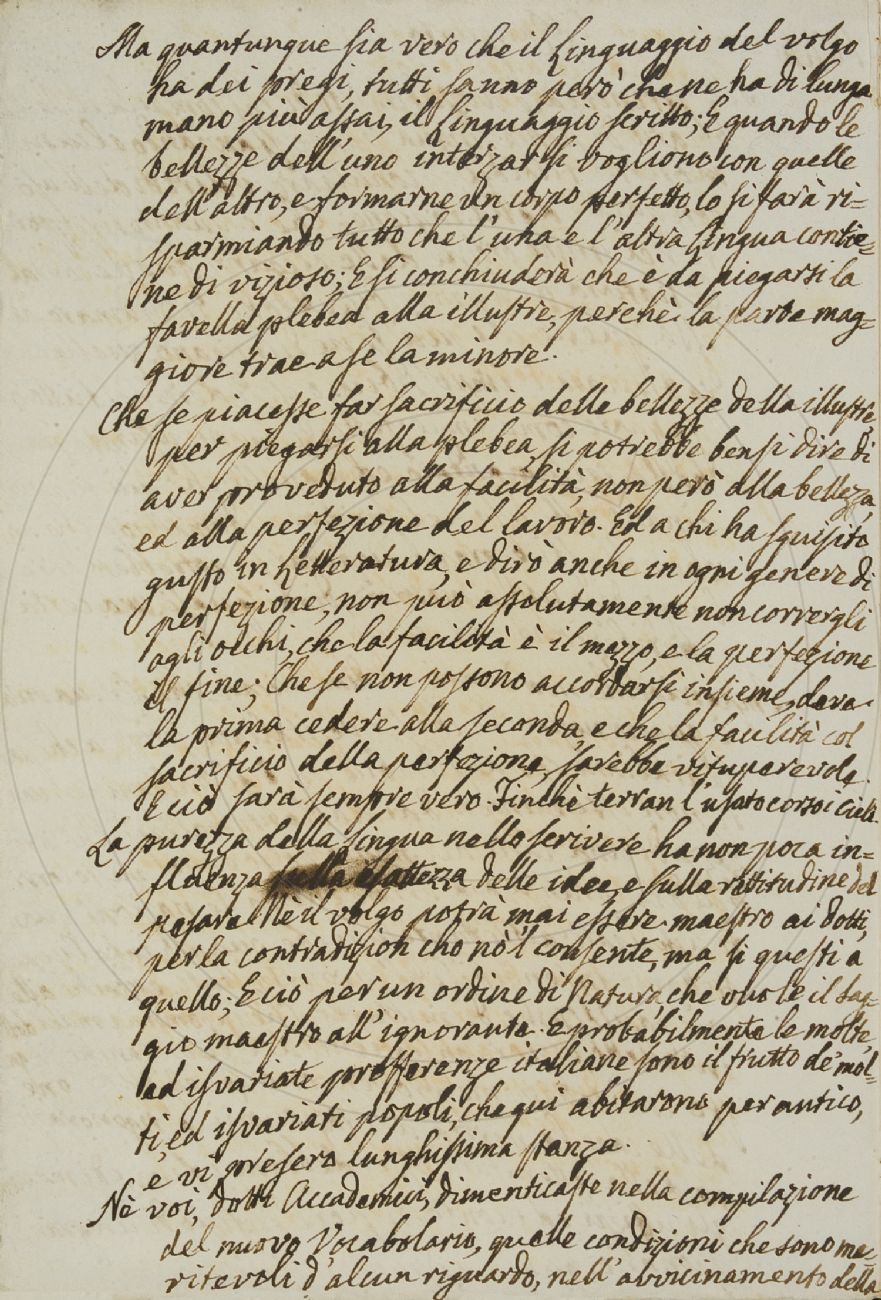 Ma quantunque sia vero che il Linguaggio del volgo
ha dei pregi, tutti sanno però che ne ha di lunga
mano più assai, il Linguaggio scritto; E quando le
bellezze dell'uno interzar si vogliono con quelle
dell'altro, e formarne un corpo perfetto, lo si farà ri=
sparmiando tutto che l'una e l'altra lingua contie=
ne di vizioso; E si conchiuderà che è da piegarsi la
favella plebea alla illustre, perchè la parte mag=
giore trae a se la minore.
Che se piacesse far sacrificio delle bellezze della illustre,
per piegarsi alla plebea, si potrebbe bensi dire di
aver proveduto alla facilità, non però alla bellezza,
ed alla perfezione del lavoro. Ed a chi ha squisito
gusto in Letteratura, e dirò anche in ogni genere di
perfezione, non può assolutamente non corrergli
agli occhi, che la facilità è il mezzo, e la perfezione
il fine; Che se non possono accordarsi insieme, deve
la prima cedere alla seconda, e che la facilità col
sacrificio della perfezione, sarebbe vituperevole.
E ciò sarà sempre vero. Finchè terran l'usato corso i Cieli.
La purezza della Lingua nello scrivere ha non poca in=
fluenza sulla esattezza delle idee, e sulla rettitudine del
pesare. Nè il volgo potrà mai essere maestro ai dotti,
per la contradizion che nò'l consente, ma si questi a
quello; E ciò per un ordine di Natura, che vuole il sag=
gio maestro all'ignorante. E probabilmente le molte,
ed isvariate profferenze italiane sono il frutto de' mol=
ti, ed isvariati popoli, che qui abitarono per antico,
e vi presero lunghissima stanza.
Nè voi, dotti Accademici, dimenticaste nella compilazione
del nuovo Vocabolario, quelle condizioni che sono me=
ritevoli d'alcun riguardo, nell'avvicinamento della